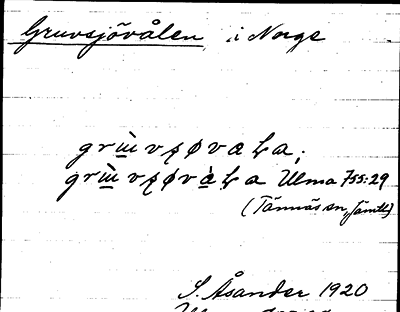 Gruvsjövålen, i Norge
grɯ̀vʂøvaɭa;
grɯ̀vʂøvàɭa Ulma 755:29
(Tännäs sn, Jämtl)
S. Åsander 1920